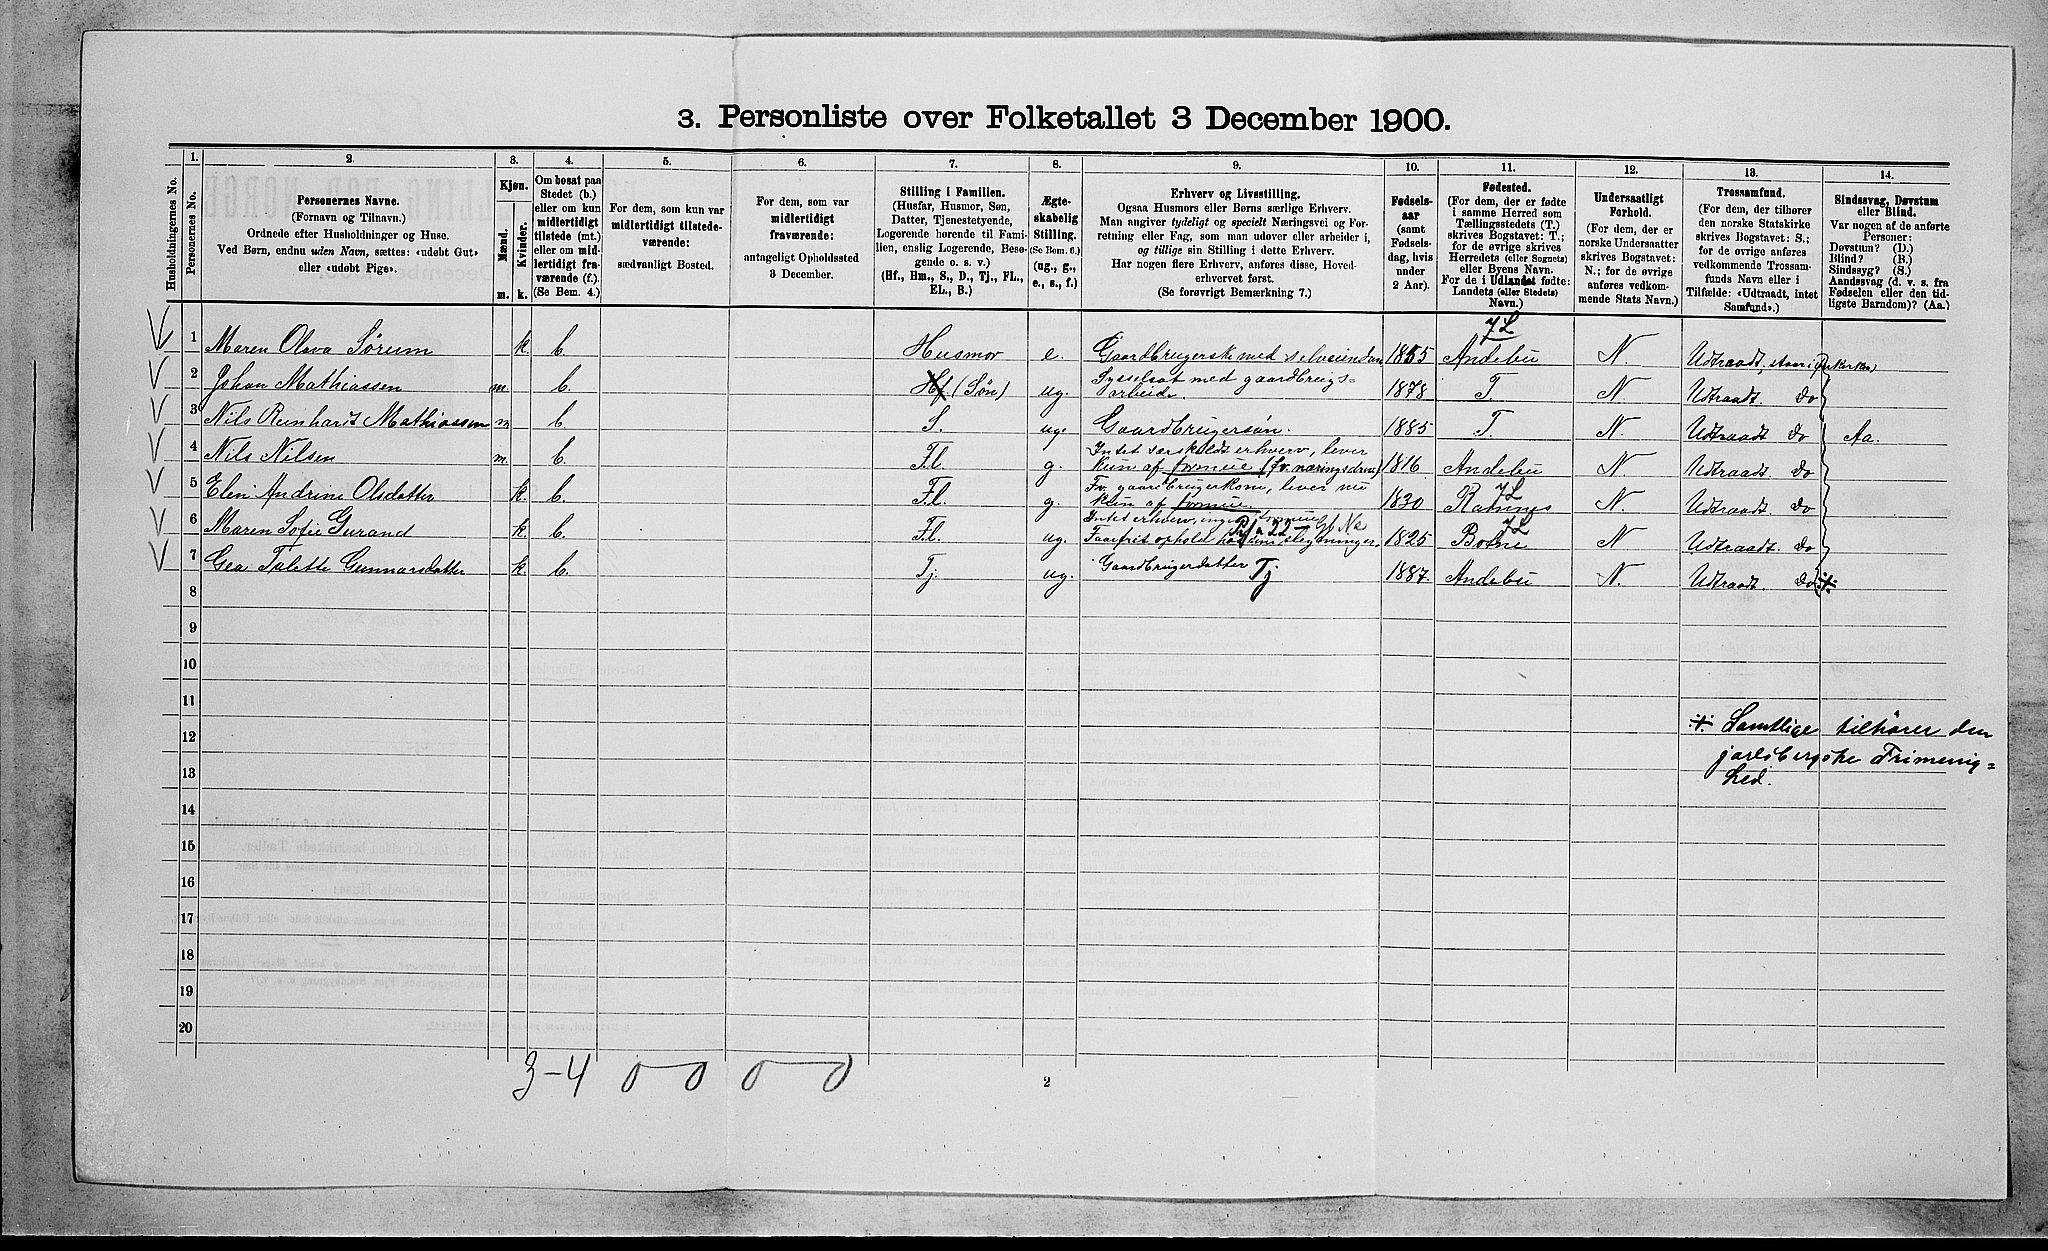 3. Personliste over Folketallet 3 December 1900.
Husholdningernes No.
1.
Personernes No.
2.
Personernes Navne.
(Fornavn og Tilnavn.)
Ordnede efter Husholdninger og Huse.
Ved Børn, endnu uden Navn, sættes: «udøbt Gut»
eller «udøbt Pige».
3.
Kjøn.
Mænd.
Kvinder.
m.
k.
4.
Om bosat paa
Stedet (b.)
eller om kun
midlertidigt
tilstede (mt.)
eller om mid-
lertidigt fra-
værende (f.)
(Se Bem. 4.)
5.
For dem, som kun var
midlertidigt tilstede-
værende:
sædvanligt Bosted.
6.
For dem, som var
midlertidigt
fraværende:
antageligt Opholdssted
3 December.
7.
Stilling i Familien.
(Husfar, Husmor, Søn,
Datter, Tjenestetyende,
Logerende hørende til Fami-
lien, enslig Logerende, Besø-
gende o. s. v.)
(Hf., Hm., S., D., Tj., FL.,
EL., B.)
8.
Ægte-
skabelig
Stilling.
(Se Bem. 6.)
(ug., g.,
e., s., f.)
9.
Erhverv og Livsstilling.
Ogsaa Husmors eller Børns særlige Erhverv.
Man angiver tydeligt og specielt Næringsvei og For-
retning eller Fag, som man udøver eller arbeider i,
og tillige sin Stilling i dette Erhverv.
Har nogen flere Erhverv, anføres disse, Hoved-
erhvervet først.
(Se forøvrigt Bemærkning 7.)
10.
Fødsels-
aar
(samt
Fødsels-
dag, hvis
under
2 Aar).
11.
Fødested.
(For dem, der er fødte
i samme Herred som
Tællingsstedets (T.)
skrives Bogstavet: T.;
for de øvrige skrives
Herredets (eller Sognets)
eller Byens Navn.
For de i Udlandet fødte:
Landets (eller Stedets)
Navn.)
12.
Undersaatligt
Forhold.
(For dem, der er
norske Undersaatter
skrives Bogstavet:
N.; for de øvrige
anføres vedkom-
mende Stats Navn.)
13.
Trossamfund.
(For dem, der tilhører
den norske Statskirke
skrives Bogstavet: S.;
for de øvrige anføres
vedkommende Trossam-
funds Navn eller i
Tilfælde: «Udtraadt, intet
Samfund».)
14.
Sindssvag, Døvstum
eller Blind.
Var nogen af de anførte
Personer:
Døvstum? (D.)
Blind? (B.)
Sindssyg? (S.)
Aandssvag (d. v. s. fra
Fødselen eller den tid-
ligste Barndom)? (Aa.)
1 Maren Olava Sørum k. b. Husmor e. Gaardbrugerske med selveiendom 1855 Andebu N. Udtraadt
JL
2 Johan Mathiassen m. b. Hf (Søn) ug. Sysselsat med gaardbrugs=
arbeide. 1878 T. N Udtraadt. Do
3 Nils Reinhardt Mathiassen m b. S. ug. Gaardbrugersøn. 1885 T. N. Udtraadt Do Aa.
4 Nils Nilsen m. b. Fl. g. Intet særskildt erhverv, lever
kun af formue (fv. næringsdriv) 1816 Andebu N Udtraadt. Do
5 Elen Andrine Olsdatter k. b. Fl. g. Fv. gaardbrugerkone, lever nu
kun af formue 1830 Ramnes N. Udtraadt Do
JL
6 Maren Sofie Gurand k. b. Fl. ug. Intet erhverv, ingen formue
Faar frit ophold hos sine slegtninger. 1825 Botne N Udtraadt. Do
JL
7 Gea Talette Gunnarsdatter k. b. Tj. ug. Gaardbrugerdatter Tj 1887. Andebu N. Udtraadt. Do
8
9
10
11
12
13
14
15
16
17
18
19
20
Samtlige tilhører den
jarlsbergske Frimenig=
hed.
3-4 0 0 0 0
2